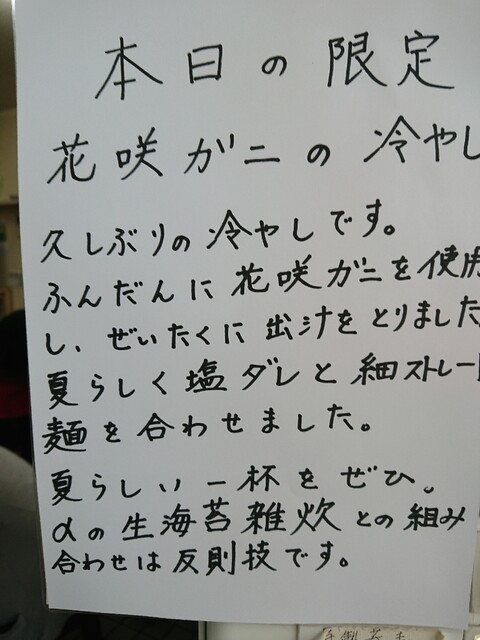 本日の限定
花咲ガニの冷やし
久しぶりの冷やしです。
ふんだんに花咲ガニを使用
し、ぜいたくに出汁をとりました
夏らしく塩ダレと細ストレート
麺を合わせました。
夏らしい一杯をぜひ。
αの生海苔雑炊との組み
合わせは反則技です。